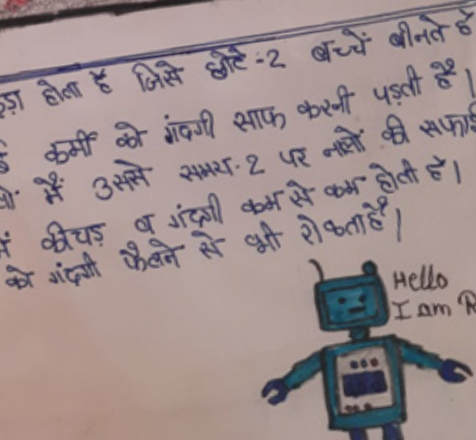 होता है जिसे छोटे-2 बच्चें बीनते हैं
कर्मी को गंदगी साफ करनी पड़ती है।
में उसमे समय-2 पर नालों की सफाई
कीचड़ व गंदगी कम से कम होती है।
को गंदगी फैलने से भी रोकता है।
Hello
I am